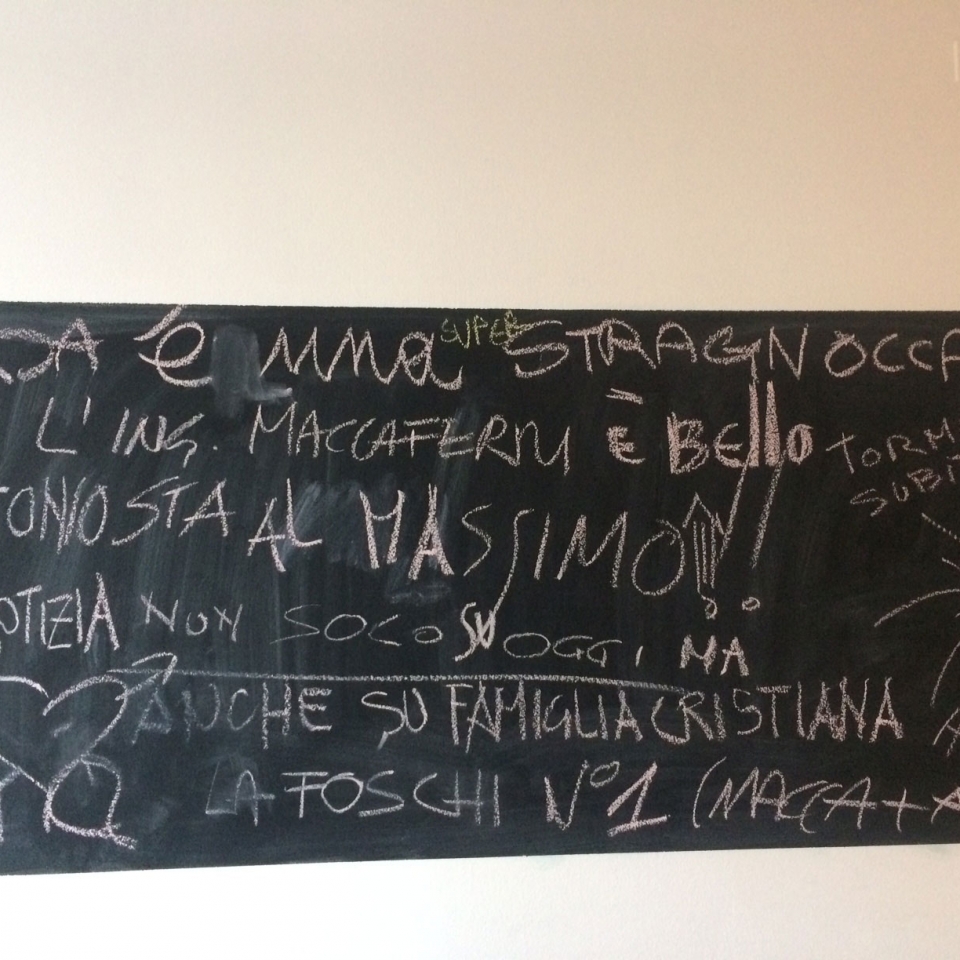 È una SUPER STRAGNOCCA
L' ING. MACCAFERRI È BELLO
TORNA
SUBITO
TONIO STA AL MASSIMO!!
NOTIZIA NON SOLO SU OGGI, MA
ANCHE SU FAMIGLIA CRISTIANA
LA FOSCHI N° 1 (MACCA + A